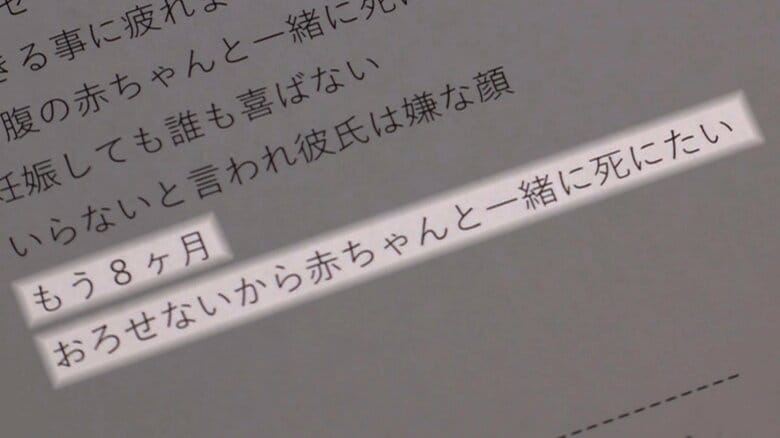 せ
きる事に疲れよ
腹の赤ちゃんと一緒に死に
妊娠しても誰も喜ばない
いらないと言われ彼氏は嫌な顔
もう8ヶ月
おろせないから赤ちゃんと一緒に死にたい